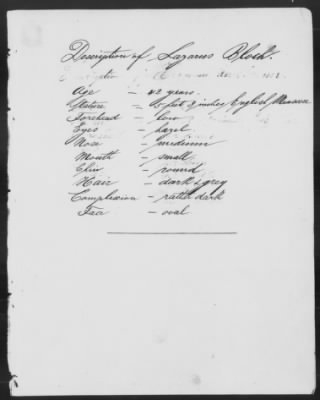 Description of Lazarus Bloch.
Age — 42 years.
Stature = 5 feet 8 inches English Measure
Forehead — low
Eyes — hazel
Nose — medium
Mouth — small
Chin — round
Hair — dark & grey
Complexion — rather dark
Face — oval